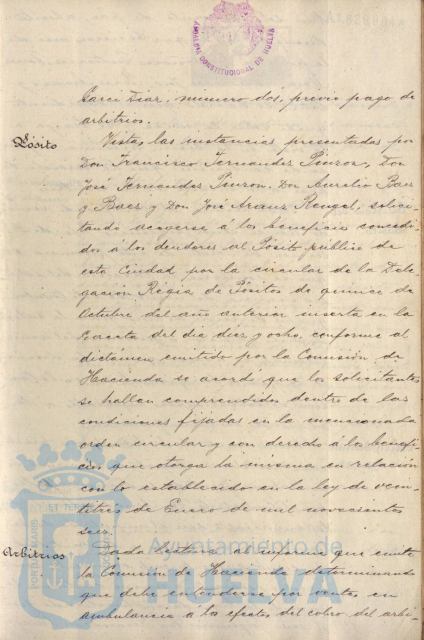 ALCALDIA CONSTITUCIONAL DE HUELVA
Garci Diaz, número dós, previo pago de
arbitrios.
Pósito
Vistas las instancias presentadas por
Don Francisco Fernandez Pinzon, Don
José Fernandez Pinzon, Don Aurelio Baez
y Baez y Don José Aranz Rengel, solici-
tando acogerse á los beneficios concedi-
dos á los deudores al Pósito público de
esta Ciudad por la circular de la Dele-
gación Régia de Pósitos de quince de
Octubre del año anterior inserta en la
Gaceta del dia diez y ocho, conforme al
dictámen emitido por la Comisión de
Hacienda se acordó que los solicitantes
se hallan comprendidos dentro de las
condiciones fijadas en la mencionada
orden circular y con derecho á los benefi-
cios que otorga la misma en relación
con lo establecido en la ley de vein-
titres de Enero de mil novecientos
seis.
Arbitrios
Dada lectura al informe que emite
la Comisión de Hacienda determinando
que debe entenderse por ventas en
ambulancia á los efectos del cobro del arbi-
Ayuntamiento de
HUELVA